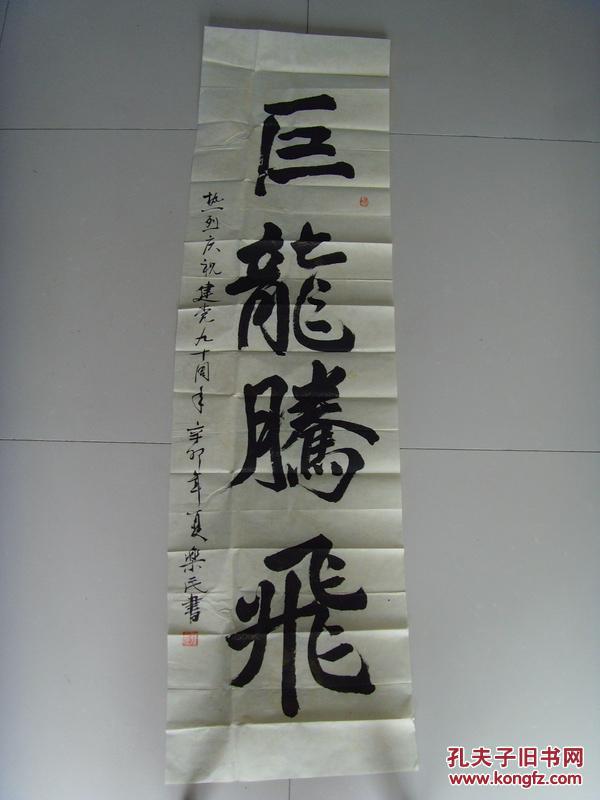 巨龍騰飛
热烈庆祝建党九十周年 辛卯年夏 樂民書
孔夫子旧书网
www.kongfz.com